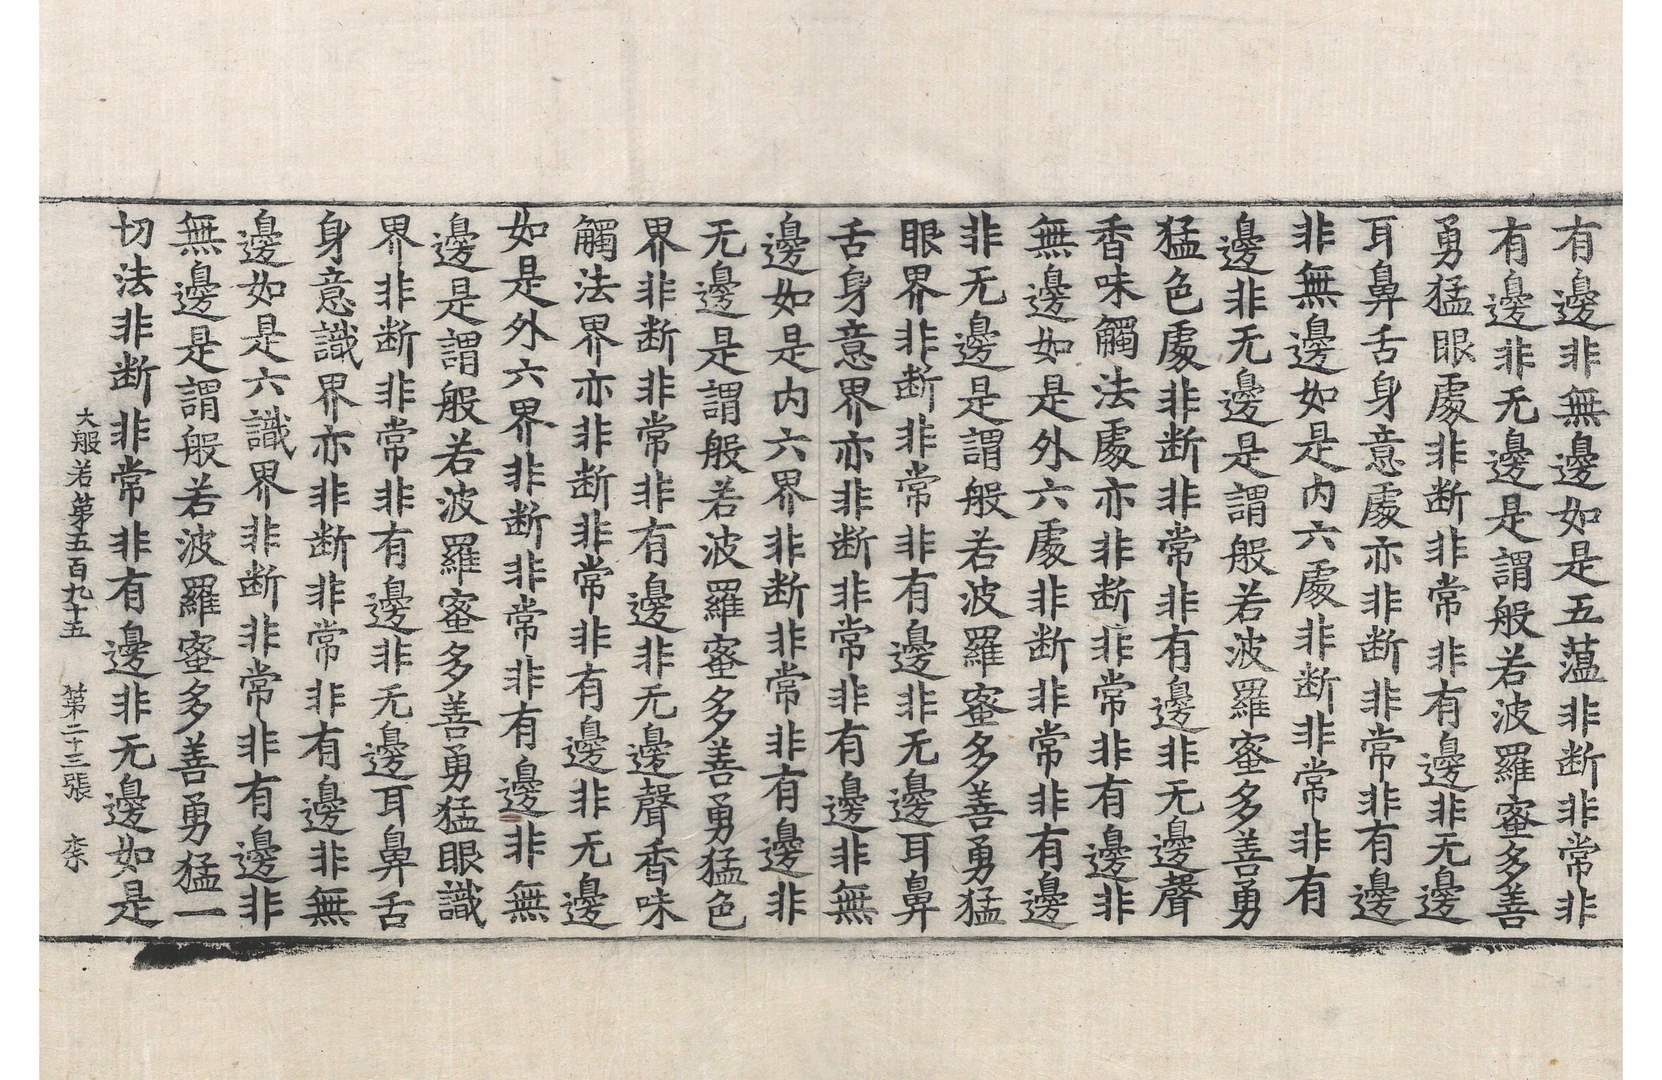 有邊非無邊如是五薀非断非常非
有邊非无邊是謂般若波羅蜜多善
勇猛眼處非断非常非有邊非无邊
耳鼻舌身意處亦非断非常非有邊
非無邊如是内六處非断非常非有
邊非无邊是謂般若波羅蜜多善勇
猛色處非断非常非有邊非无邊聲
香味觸法處亦非断非常非有邊非
無邊如是外六處非断非常非有邊
非无邊是謂般若波羅蜜多善勇猛
眼界非断非常非有邊非无邊耳鼻
舌身意界亦非断非常非有邊非無
邊如是内六界非断非常非有邊非
无邊是謂般若波羅蜜多善勇猛色
界非断非常非有邊非无邊聲香味
觸法界亦非断非常非有邊非无邊
如是外六界非断非常非有邊非無
邊是謂般若波羅蜜多善勇猛眼識
界非断非常非有邊非无邊耳鼻舌
身意識界亦非断非常非有邊非無
邊如是六識界非断非常非有邊非
無邊是謂般若波羅蜜多善勇猛一
切法非断非常非有邊非无邊如是
大般若第五百九十五 第二十三張 柰